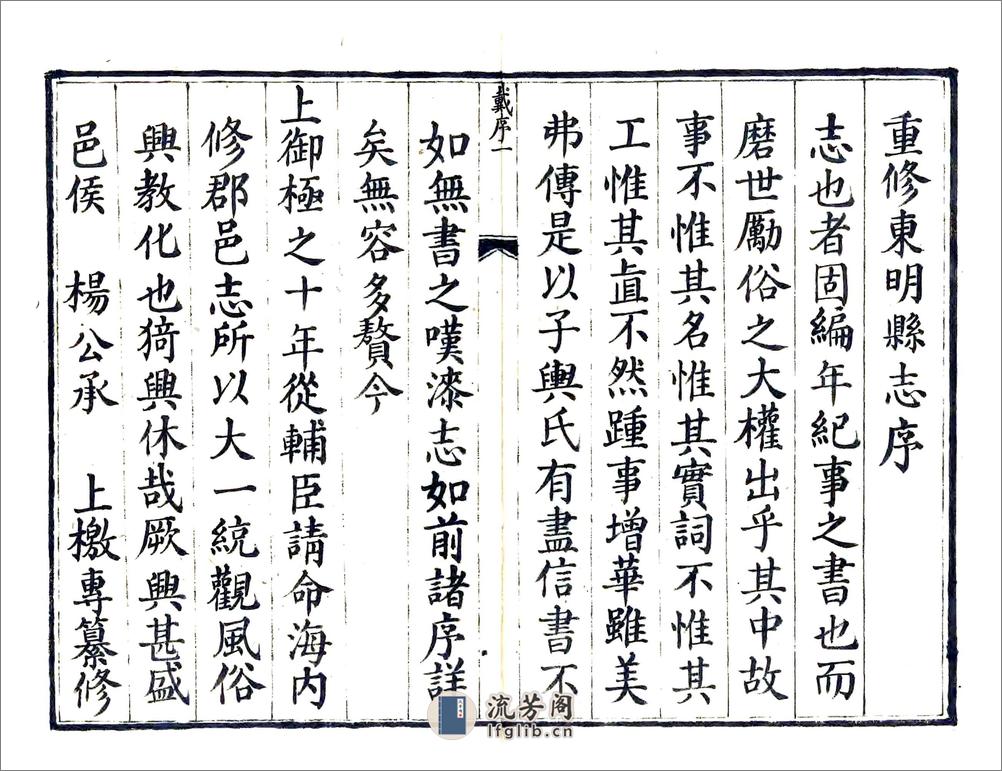 重修東明縣志序
志也者固編年紀事之書也而
磨世勵俗之大權出乎其中故
事不惟其名惟其實詞不惟其
工惟其眞不然踵事增華雖美
弗傳是以子輿氏有盡信書不
戴序一
如無書之嘆漆志如前諸序詳
矣無容多贅今
上御極之十年從輔臣請命海内
修郡邑志所以大一統觀風俗
興教化也猗興休哉厥興甚盛
邑侯 楊公承 上檄專纂修
流芳阁
lfglib.cn